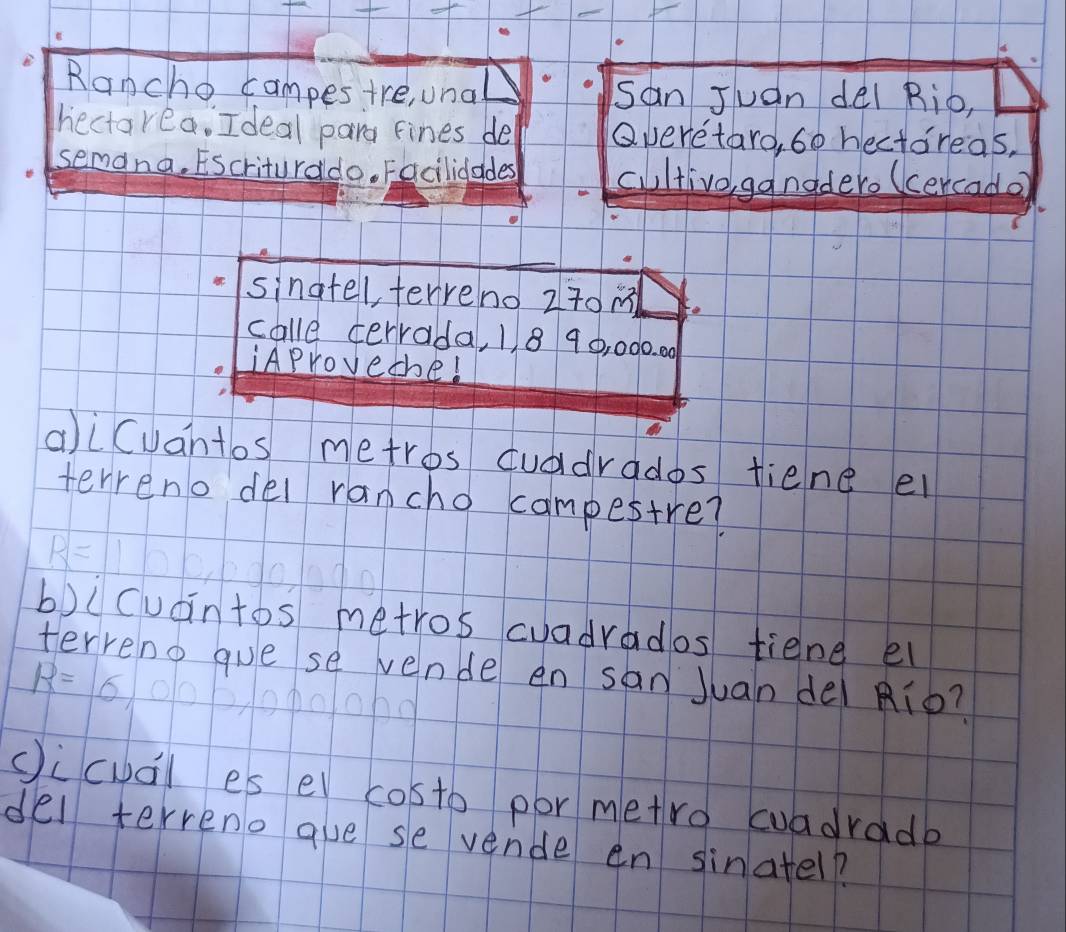 Rancho campestre, una
hectarea. Ideal para fines de
semana. Escriturado. Facilidades
San Juan del Rio,
Querétaro, 60 hectáreas,
cultivo, ganadero (cercado)
sinatel, terreno 270 m²
calle cerrada, 1,890,000.00
¡Aproveche!
a) ¿Cuántos metros cuadrados tiene el
terreno del rancho campestre?
R=
b) ¿Cuántos metros cuadrados tiene el
terreno que se vende en san Juan del Río?
R=
c) ¿cuál es el costo por metro cuadrado
del terreno que se vende en sinatel?